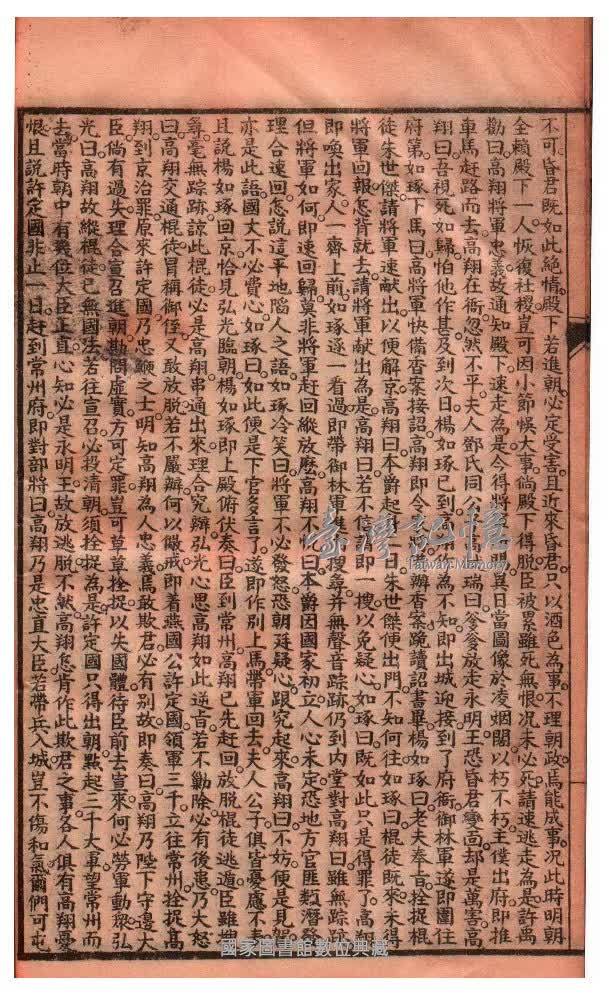 不可昏君既如此絕情殿下若進朝必定受害且近來昏君只以酒色為事不理朝政焉能成事况此時明朝
全賴殿下一人恢復社稷豈可因小節悞大事倘殿下得脫臣被累雖死無恨况未必死請速逃走為是許禹
勸曰高翔將軍忠義故通知殿下速走為是今得將異日當圖像於凌烟閣以朽不朽王僕出府即推
車馬赶路而去高翔在衙忽然不平夫人鄧氏同公瑞曰爹爹放走永明王恐昏君變面却是萬害高
翔曰吾視死如歸怕他作甚及到次日楊如琢已到為不知即出城迎接到了府衙御林軍遂即圍住
府第如琢下馬曰高將軍快備香案接詔高翔即令備辦香案跪讀詔書畢楊如琢曰老夫奉旨拴捉棍
徒朱世傑請將軍速献出以便解京高翔曰本爵起日朱世傑便出門不知何往如琢曰棍徒既來未得
將軍回報怎肯就去請將軍献出為是高翔曰若不信請即一搜以免疑心如琢曰既如此只是得罪了高翔
即喚出家人一齊上前如琢逐一看過即帶御林軍進搜尋並無聲音踪跡仍到内堂對高翔曰雖無踪跡
但將軍如何即速回歸莫非將軍赶回縱放麽高翔不兄曰本爵因國家初立人心未定恐地方官匪類潛發
理合速回怎說這平地陷人之語如琢冷笑曰將軍不必發怒恐朝廷疑心跟究起來高翔曰不妨便是見駕
亦是此語國丈不必費心如琢曰如此便是下官多言了遂即作別上馬帶軍回去夫人公子俱皆憂慮不表
且說楊如琢回京恰見弘光臨朝楊如琢即上殿俯伏奏曰臣到常州高翔已先赶回放脫棍徒逃遁臣雖搜
尋毫無踪跡諒此棍徒必是高翔串通出來理合究辦弘光心思高翔如此逆旨若不勦除必有後患乃大怒
曰高翔交通棍徒冒稱御侄又敢放脫若不嚴辦何以儆戒即着燕國公許定國領軍三千立往常州拴捉高
翔到京治罪原來許定國乃忠鯁之士明知高翔為人忠義焉敢欺君必有別故即奏曰高翔乃陛下守邊大
臣倘有過失理合宣召進朝勘問虛實方可定罪豈可草草拴捉以失國體待臣前去宣來何必勞軍動眾弘
光曰高翔故縱棍徒已無國法若往宣召必投清朝須拴捉為是許定國只得出朝點起三千大軍望常州而
去當時朝中有幾位大臣正直心知必是永明王故放逃脫不然高翔怎肯作此欺君之事各人俱有高翔憂
恨且說許定國非止一日赶到常州府即對部將曰高翔乃是忠直大臣若帶兵入城豈不傷和氣爾們可屯
臺灣記憶
Taiwan Memory
國家圖書館數位典藏